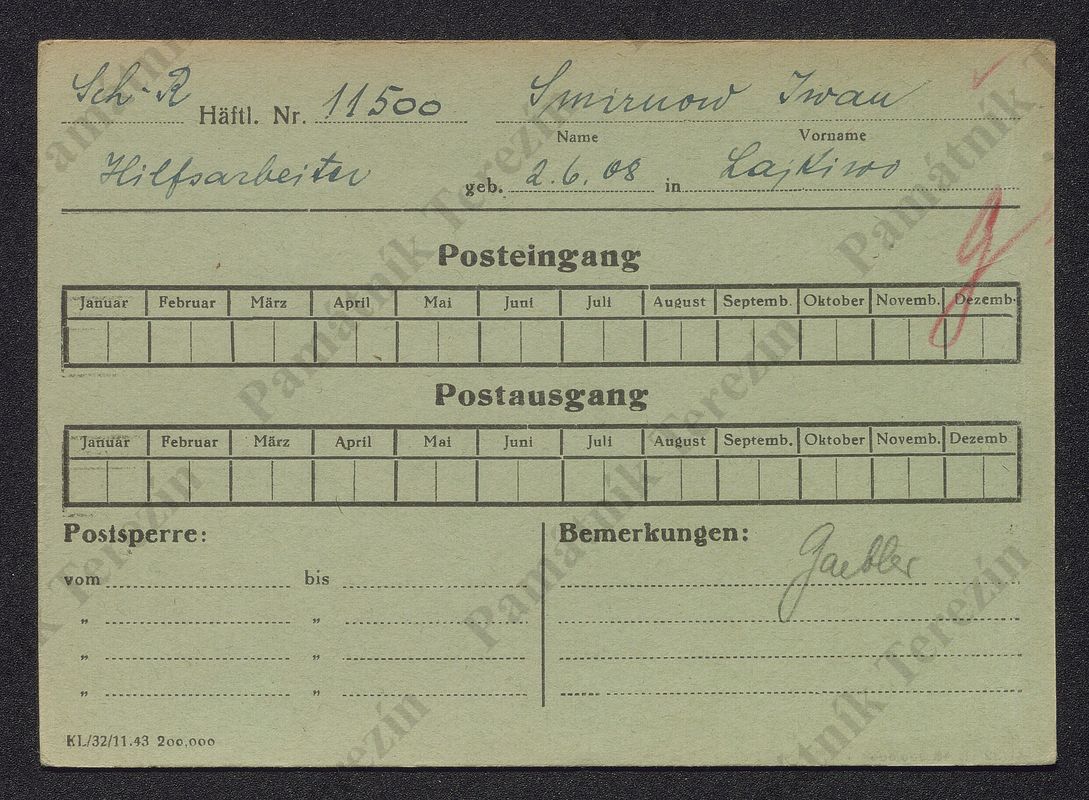 Sch-R Häftl. Nr. 11500 Smirnow Iwan
Name Vorname
Hilfsarbeiter geb. 2.6.08 in Lajkiwo
Posteingang
Januar Februar März April Mai Juni Juli August Septemb. Oktober Novemb. Dezemb.
Postausgang
Januar Februar März April Mai Juni Juli August Septemb. Oktober Novemb. Dezemb
Postsperre: Bemerkungen:
Gaebler
vom bis
„ „
„ „
„ „
KL/32/11.43 200,000
Památník Terezín